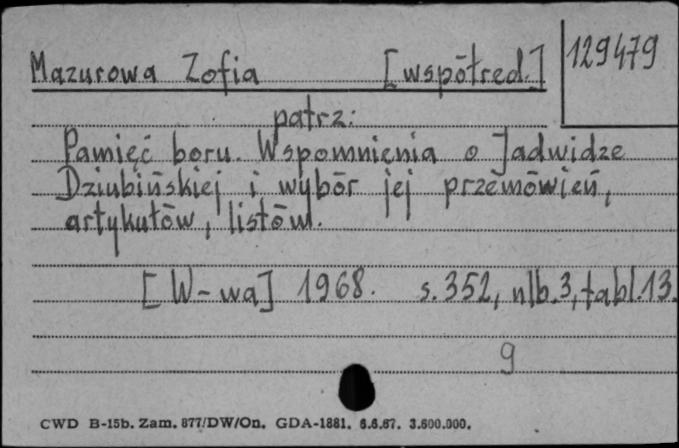 Mazurowa Zofia [współred.] 129479
patrz:
Pamięć boru. Wspomnienia o Jadwidze
Dziubińskiej i wybór jej przemówień,
artykułów, listów.
[W-wa] 1968. s. 352, nlb. 3, tabl. 13.
9
CWD B-15b. Zam. 877/DW/On. GDA-1881. 6.6.67. 3.600.000.